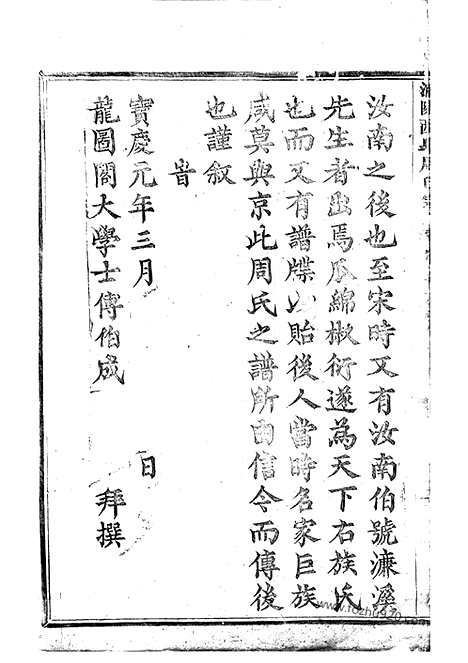 汝南之後也至宋時又有汝南伯號濂溪
先生者出焉瓜綿椒衍遂為天下右族氏
也而又有譜牒以貽後人當時名家巨族
咸莫與京此周氏之譜所由信今而傳後
也謹叙
旹
寶慶元年三月 日
龍圖閣大學士傅伯成 拜撰